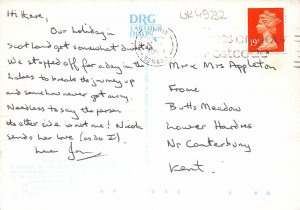 Hi there,
Our holiday in
Scotland got somewhat diverted
We stopped off for a day in the
Lakes to break the journey up
and somehow never got away.
Needless to say the person
the other side is not me! Nicola
sends her love (as do I).
Love Jon
DRG
UK4982
19
POSTCODE
Mr & Mrs Appleton
Frome
Butts Meadow
Lower Hardres
Nr Canterbury
Kent.